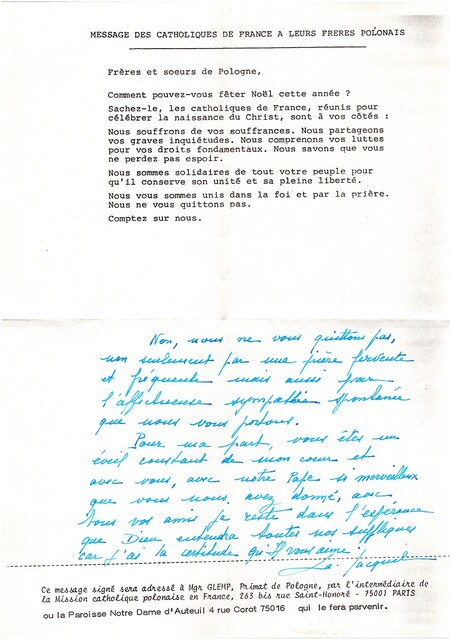 MESSAGE DES CATHOLIQUES DE FRANCE A LEURS FRERES POLONAIS
Frères et soeurs de Pologne,
Comment pouvez-vous fêter Noël cette année ?
Sachez-le, les catholiques de France, réunis pour
célébrer la naissance du Christ, sont à vos côtés :
Nous souffrons de vos souffrances. Nous partageons
vos graves inquiétudes. Nous comprenons vos luttes
pour vos droits fondamentaux. Nous savons que vous
ne perdez pas espoir.
Nous sommes solidaires de tout votre peuple pour
qu'il conserve son unité et sa pleine liberté.
Nous vous sommes unis dans la foi et par la prière.
Nous ne vous quittons pas.
Comptez sur nous.
Non, nous ne vous quittons pas,
non seulement par une prière fervente
et fréquente mais aussi par
l'affectueuse sympathie spontanée
que nous vous portons.
Pour ma part, vous êtes un
éveil constant de mon coeur et
avec vous, avec notre Pape si merveilleux
que vous nous avez donné, avec
tous vos amis je reste dans l'espérance
que Dieu entendra toutes nos suppliques
car j'ai la certitude qu'Il vous aime !
Ce message signé sera adressé à Mgr GLEMP, Primat de Pologne, par l'intermédiaire de
la Mission catholique polonaise en France, 263 bis rue Saint-Honoré - 75001 PARIS
ou la Paroisse Notre Dame d'Auteuil 4 rue Corot 75016 qui le fera parvenir.